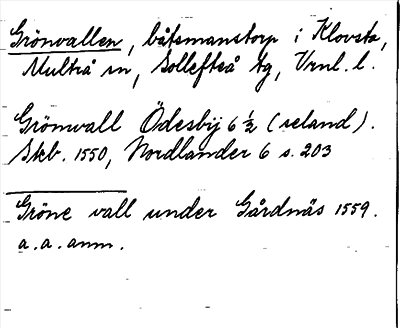 Grönvallen, båtsmanstorp i Klovsta,
Multrå sn, Sollefteå tg, Vrnl. l.
Grönwall Ödesbÿ 6 ½ (seland).
Skb. 1550, Nordlander 6 s. 203
Gröne vall under Gårdnäs 1559.
a. a. anm.